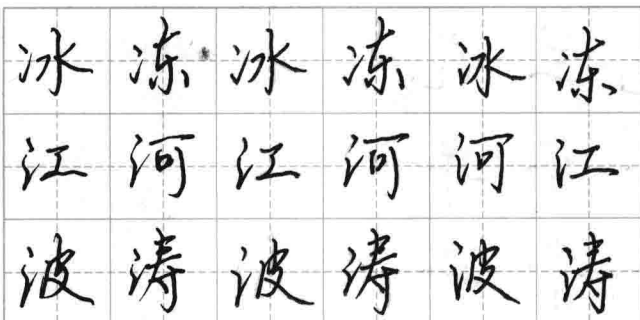 冰冻冰冻冰冻
江河江河河江
波涛波涛波涛